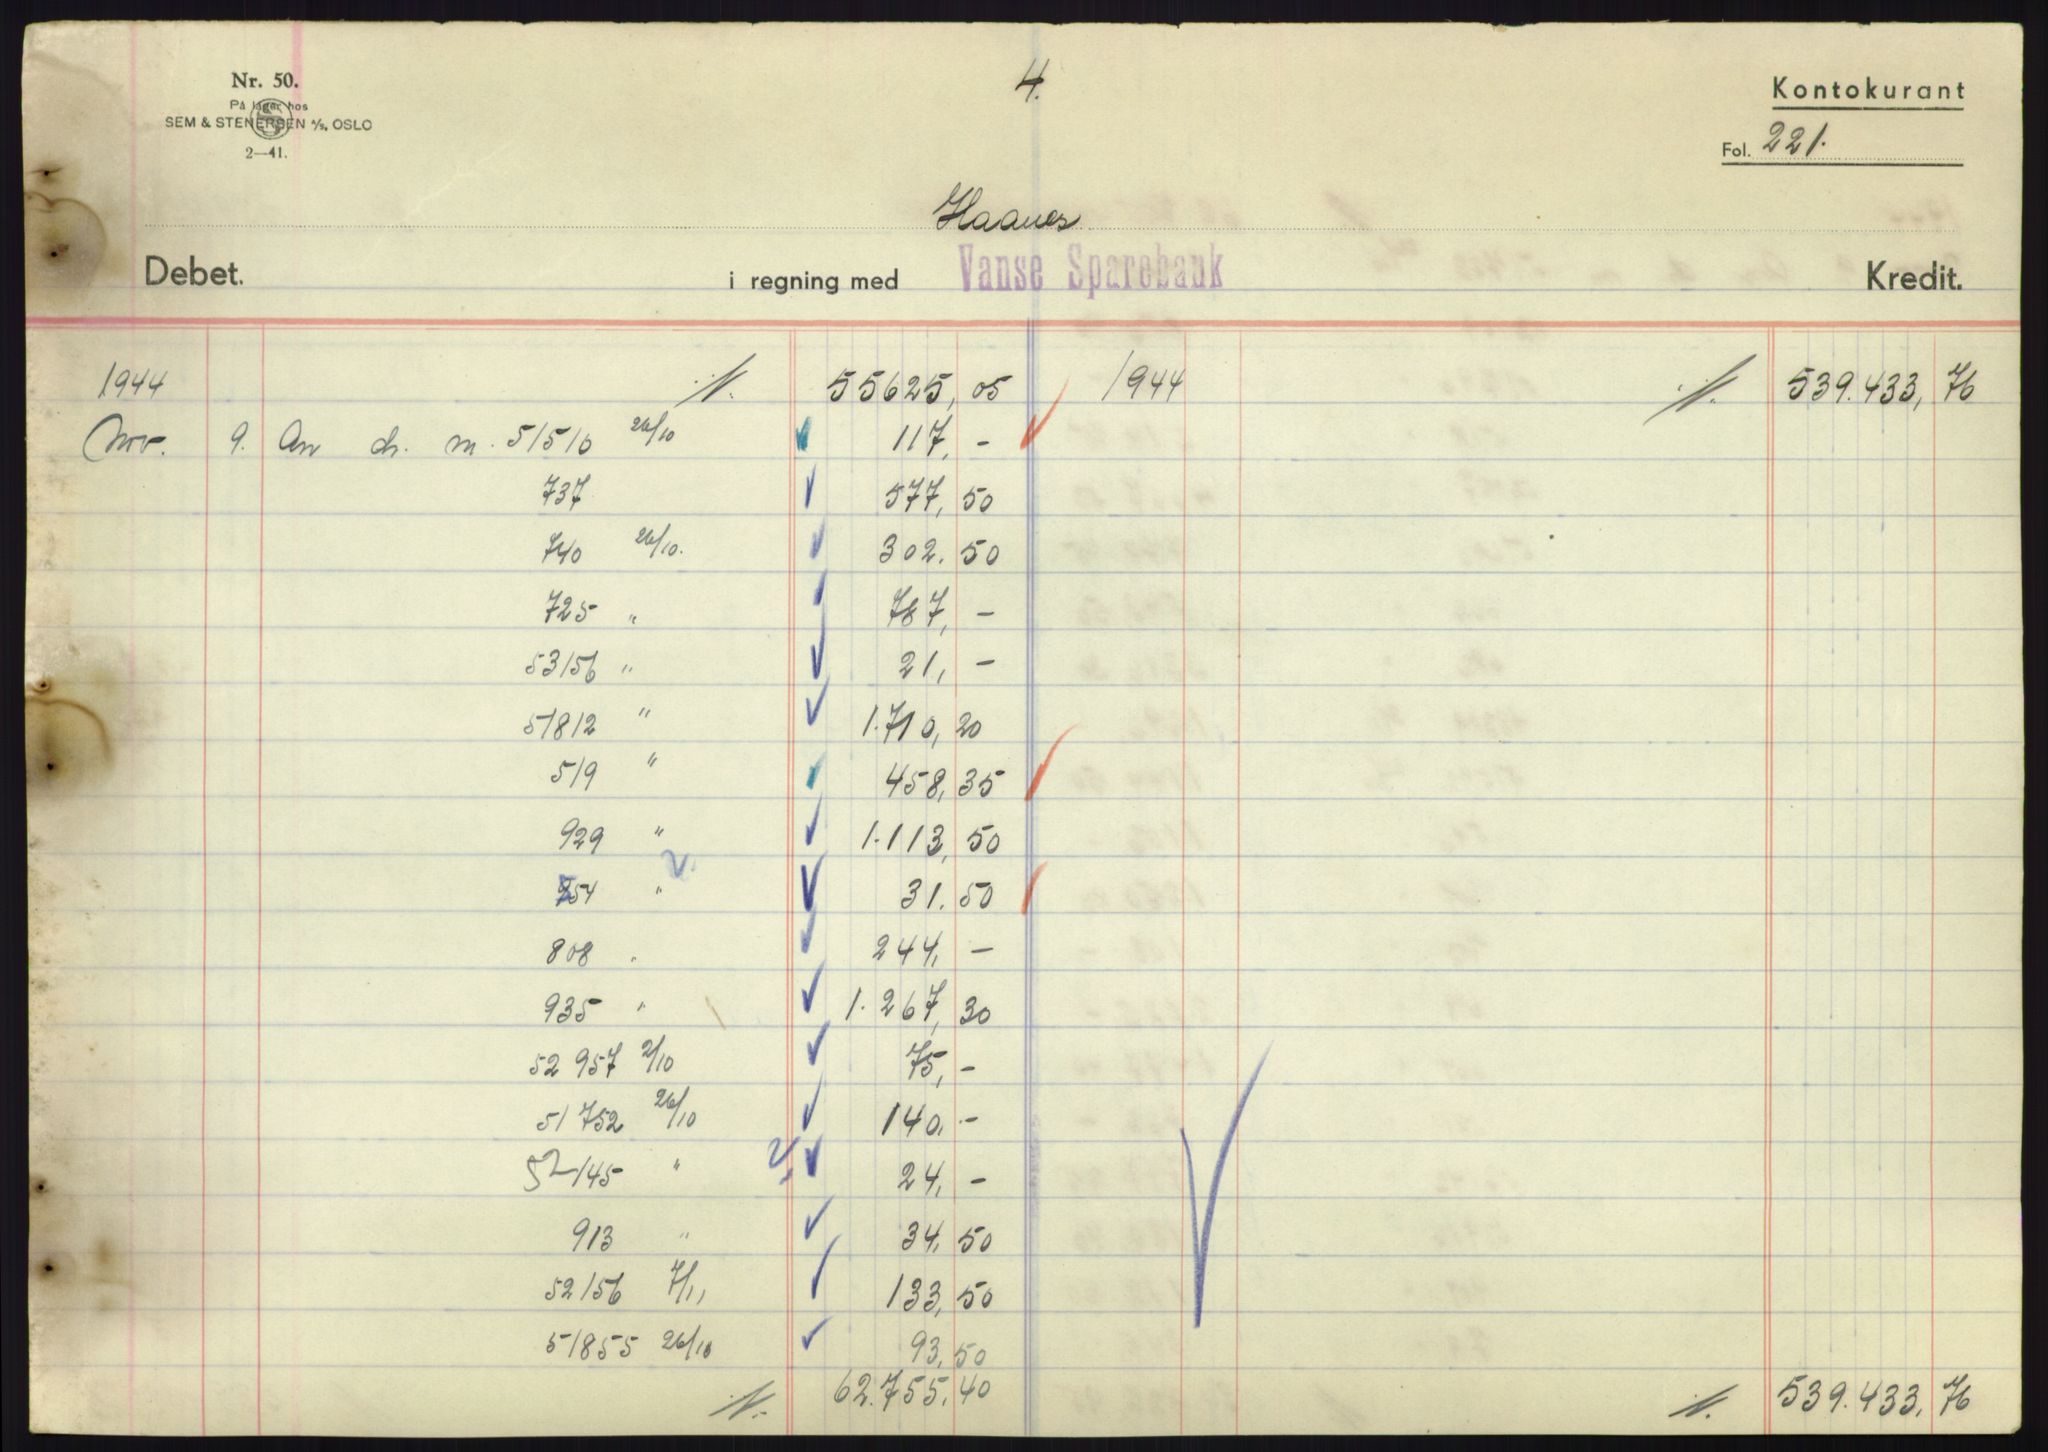 Nr. 50.
På lager hos
SEM & STENERSEN A/S, OSLO
2—41.
4.
Kontokurant
Fol. 221.
Haanes
Debet. i regning med Vanse Sparebank Kredit.
1944 55625,05 1944 539.433,76
Nov. 9. An ch. m. 51510 26/10 117,-
737 577,50
740 26/10. 302.50
725 " 787,-
53156 " 21,-
51812 " 1.710,20
519 " 458,35
929 " 1.113,50
54 " 31.50
808 " 244,-
935 " 1.267,30
52957 2/10 75,-
51752 26/10 140,-
52145 " 24,-
913 " 34,50
52156 7/11 133,50
51855 26/10 93,50
62.755,40 539.433,76